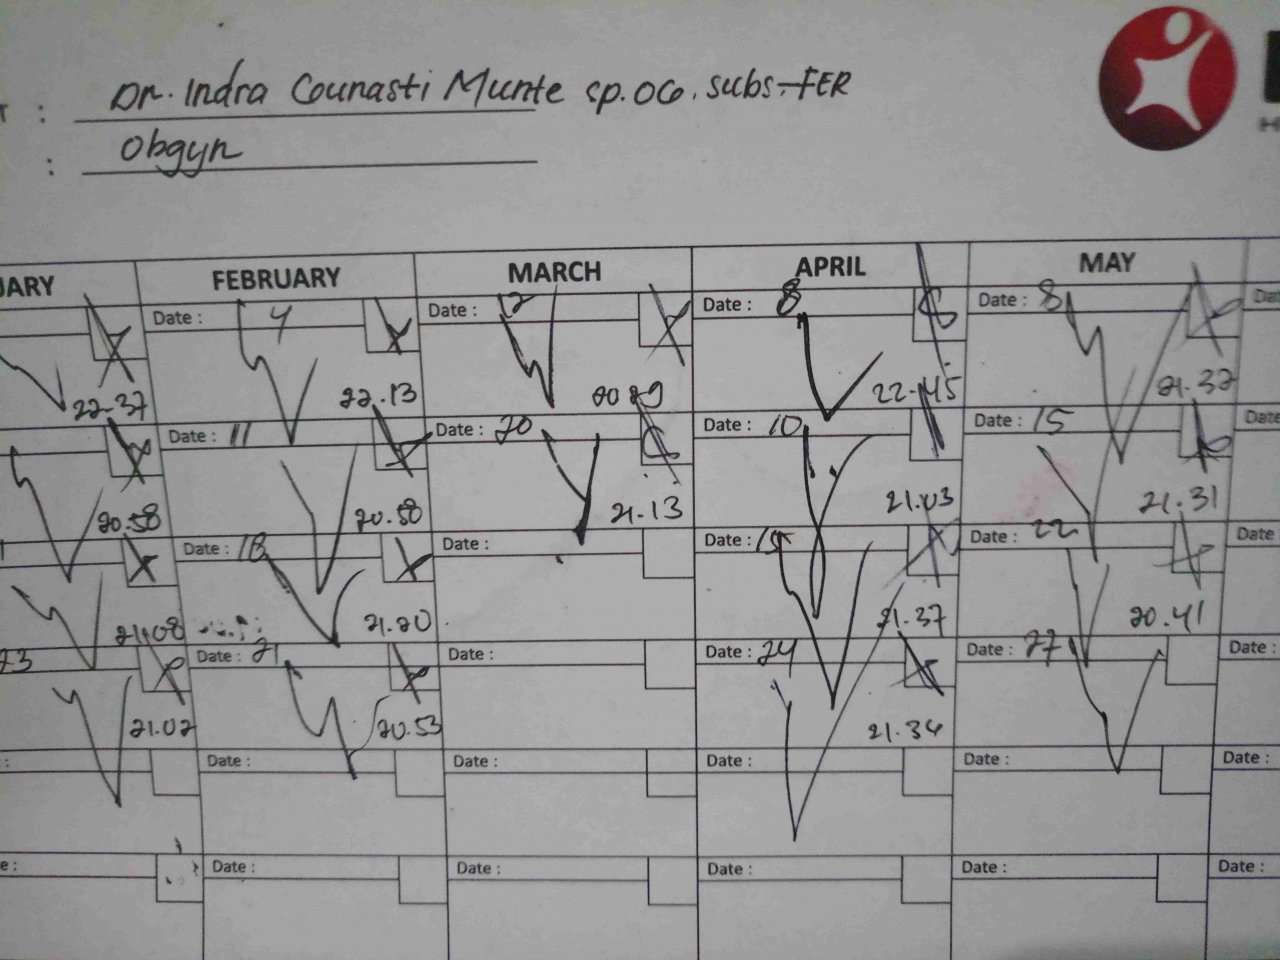 : Dr. Indra Counasti Munte sp.OG. subs-FER
: Obgyn
FEBRUARY MARCH APRIL MAY
Date : 4 Date : 12 Date : 8 Date : 8
22.37 22.13 22.45 21.32
Date : 11 Date : 20 Date : 10 Date : 15
20.58 20.50 21.13 21.03 21.31
Date : 18 Date : Date : 15 Date : 22
21.08 21.20 21.37 20.41
23 Date : 21 Date : Date : 24 Date : 27 Date :
21.02 20.53 21.34
Date : Date : Date : Date : Date :
Date : Date : Date : Date : Date :